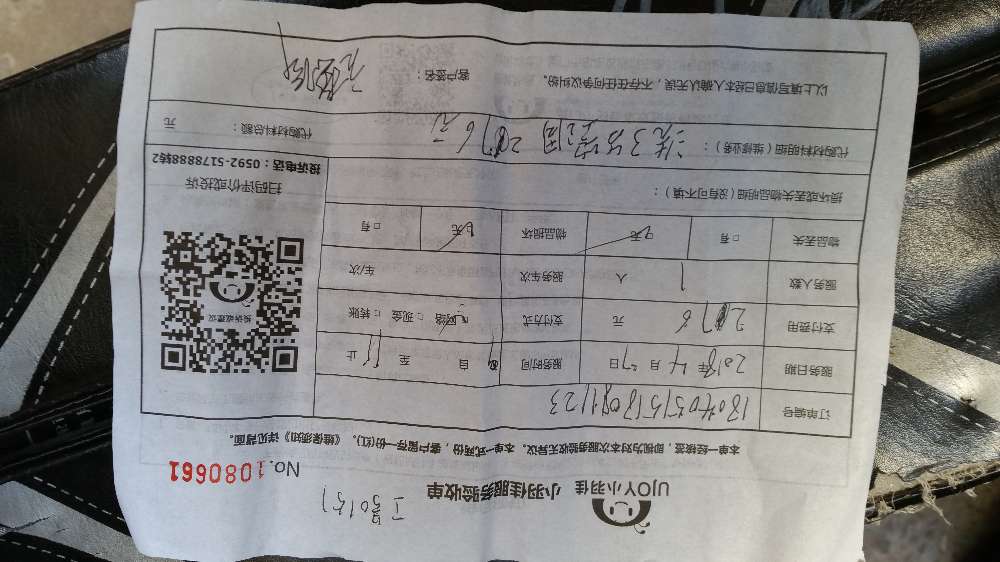 UJOY小羽佳 小羽佳服务验收单
No.1080661
本单一经核签，即视为对本次服务验收无异议。本单一式两份，客户留存一份(红)。《维保须知》详见背面。
订单编号
服务日期 2018年4月7日 服务时间 自 9 至 11 止
支付费用 元 支付方式 ☑网络 □现金 □转账
服务人数 1 人 服务车次 车/次
物品丢失 □有 ☑无 物品损坏 □有 ☑无
损坏或丢失物品明细（没有可不填）：
代购材料明细（维修业务）：
代购材料总额： 元
以上填写信息已经本人确认无误，不存在任何争议纠纷。
客户签名：
投诉或建议
扫码评价或投诉
投诉电话：0592-5178888转2